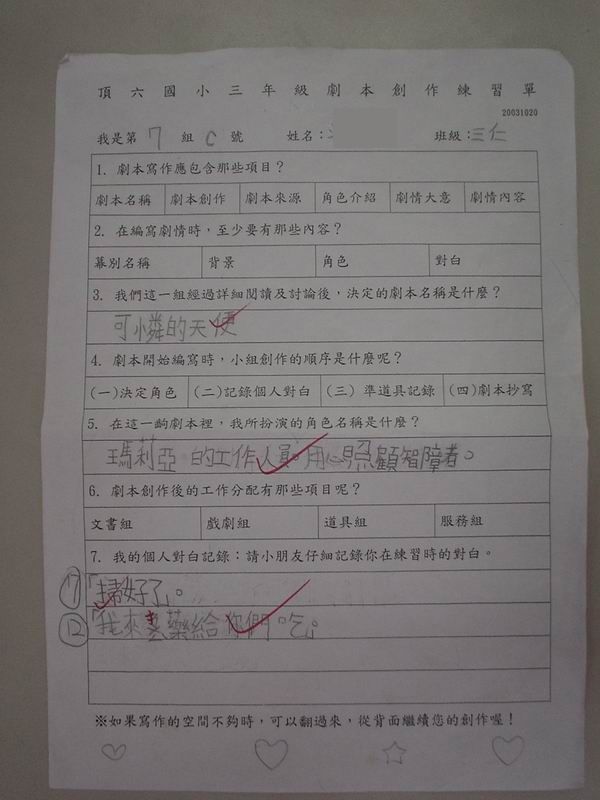 頂六國小三年級劇本創作練習單
20031020
我是第 7 組 C 號 姓名: 班級:三仁
1. 劇本寫作應包含那些項目?
劇本名稱 劇本創作 劇本來源 角色介紹 劇情大意 劇情內容
2. 在編寫劇情時,至少要有那些內容?
幕別名稱 背景 角色 對白
3. 我們這一組經過詳細閱讀及討論後,決定的劇本名稱是什麼?
可憐的天使
4. 劇本開始編寫時,小組創作的順序是什麼呢?
(一)決定角色 (二)記錄個人對白 (三) 準道具記錄 (四)劇本抄寫
5. 在這一齣劇本裡,我所扮演的角色名稱是什麼?
瑪莉亞 的工作人員。用心照顧智障者。
6. 劇本創作後的工作分配有那些項目呢?
文書組 戲劇組 道具組 服務組
7. 我的個人對白記錄:請小朋友仔細記錄你在練習時的對白。
「掃好了」。
⑫「我來拿藥給你們吃」
※如果寫作的空間不夠時,可以翻過來,從背面繼續您的創作喔!